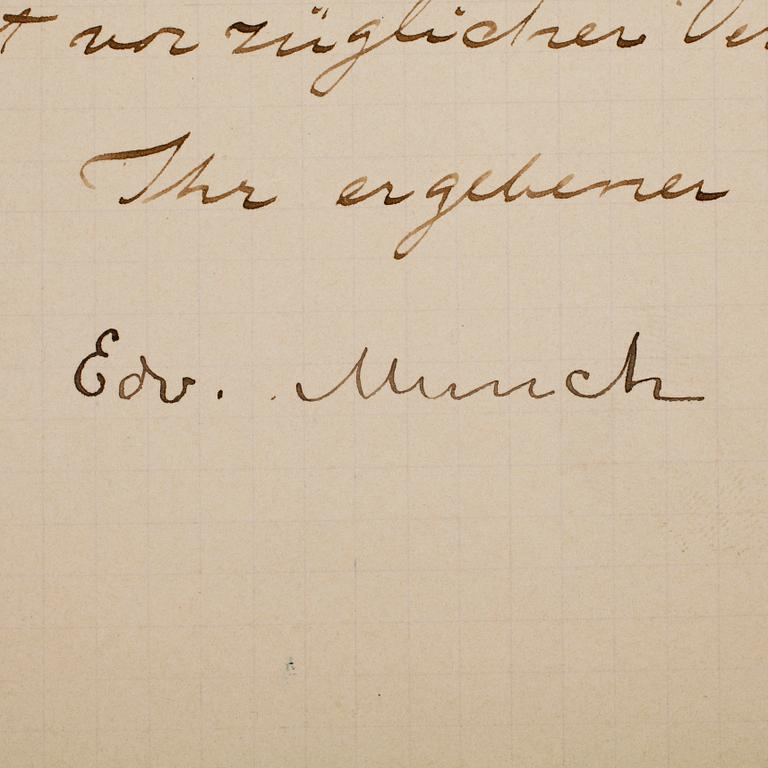 t vorzüglicher Ver
Ihr ergebener
Edv. Munch